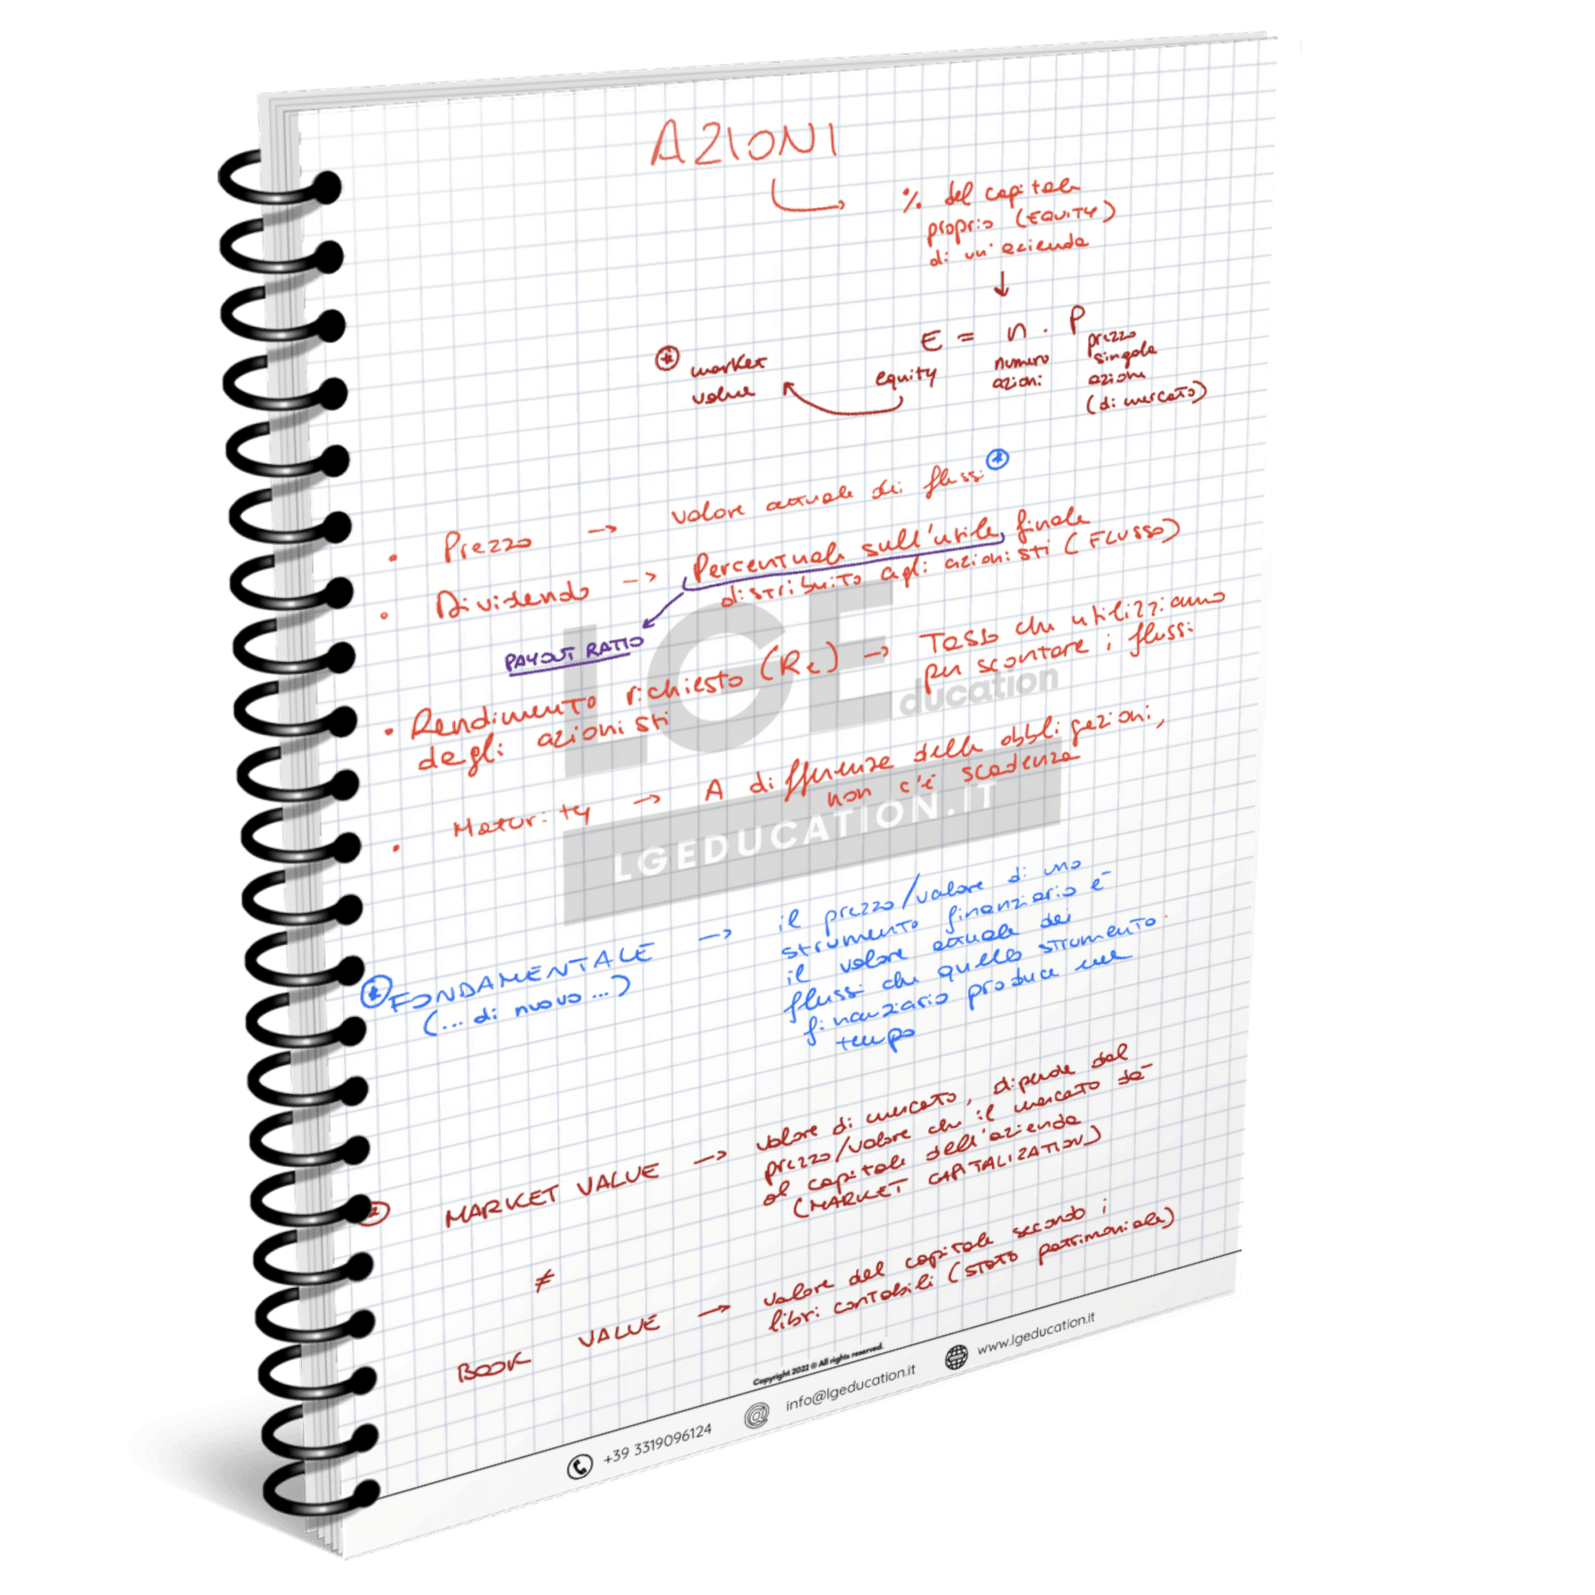 AZIONI
% del capitale
proprio (EQUITY)
di un'azienda
E = n . P
equity
numero
azioni
prezzo
singola
azione
(di mercato)
* market
value
• Prezzo → valore attuale dei flussi *
• Dividendo → Percentuale sull'utile finale
distribuito agli azionisti (FLUSSO)
PAYOUT RATIO
• Rendimento richiesto (Re) → Tasso che utilizziamo
degli azionisti
per scontare i flussi
• Maturity → A differenza delle obbligazioni,
non c'è scadenza
LGEducation
LGEDUCATION.IT
* FONDAMENTALE → il prezzo/valore di uno
(... di nuovo ...)
strumento finanziario è
il valore attuale dei
flussi che quello strumento
finanziario produce nel
tempo
MARKET VALUE → valore di mercato, dipende dal
prezzo/valore che il mercato dà
al capitale dell'azienda
(MARKET CAPITALIZATION)
≠
BOOK VALUE → valore del capitale secondo i
libri contabili (stato patrimoniale)
Copyright 2022 © All rights reserved.
+39 3319096124
info@lgeducation.it
www.lgeducation.it